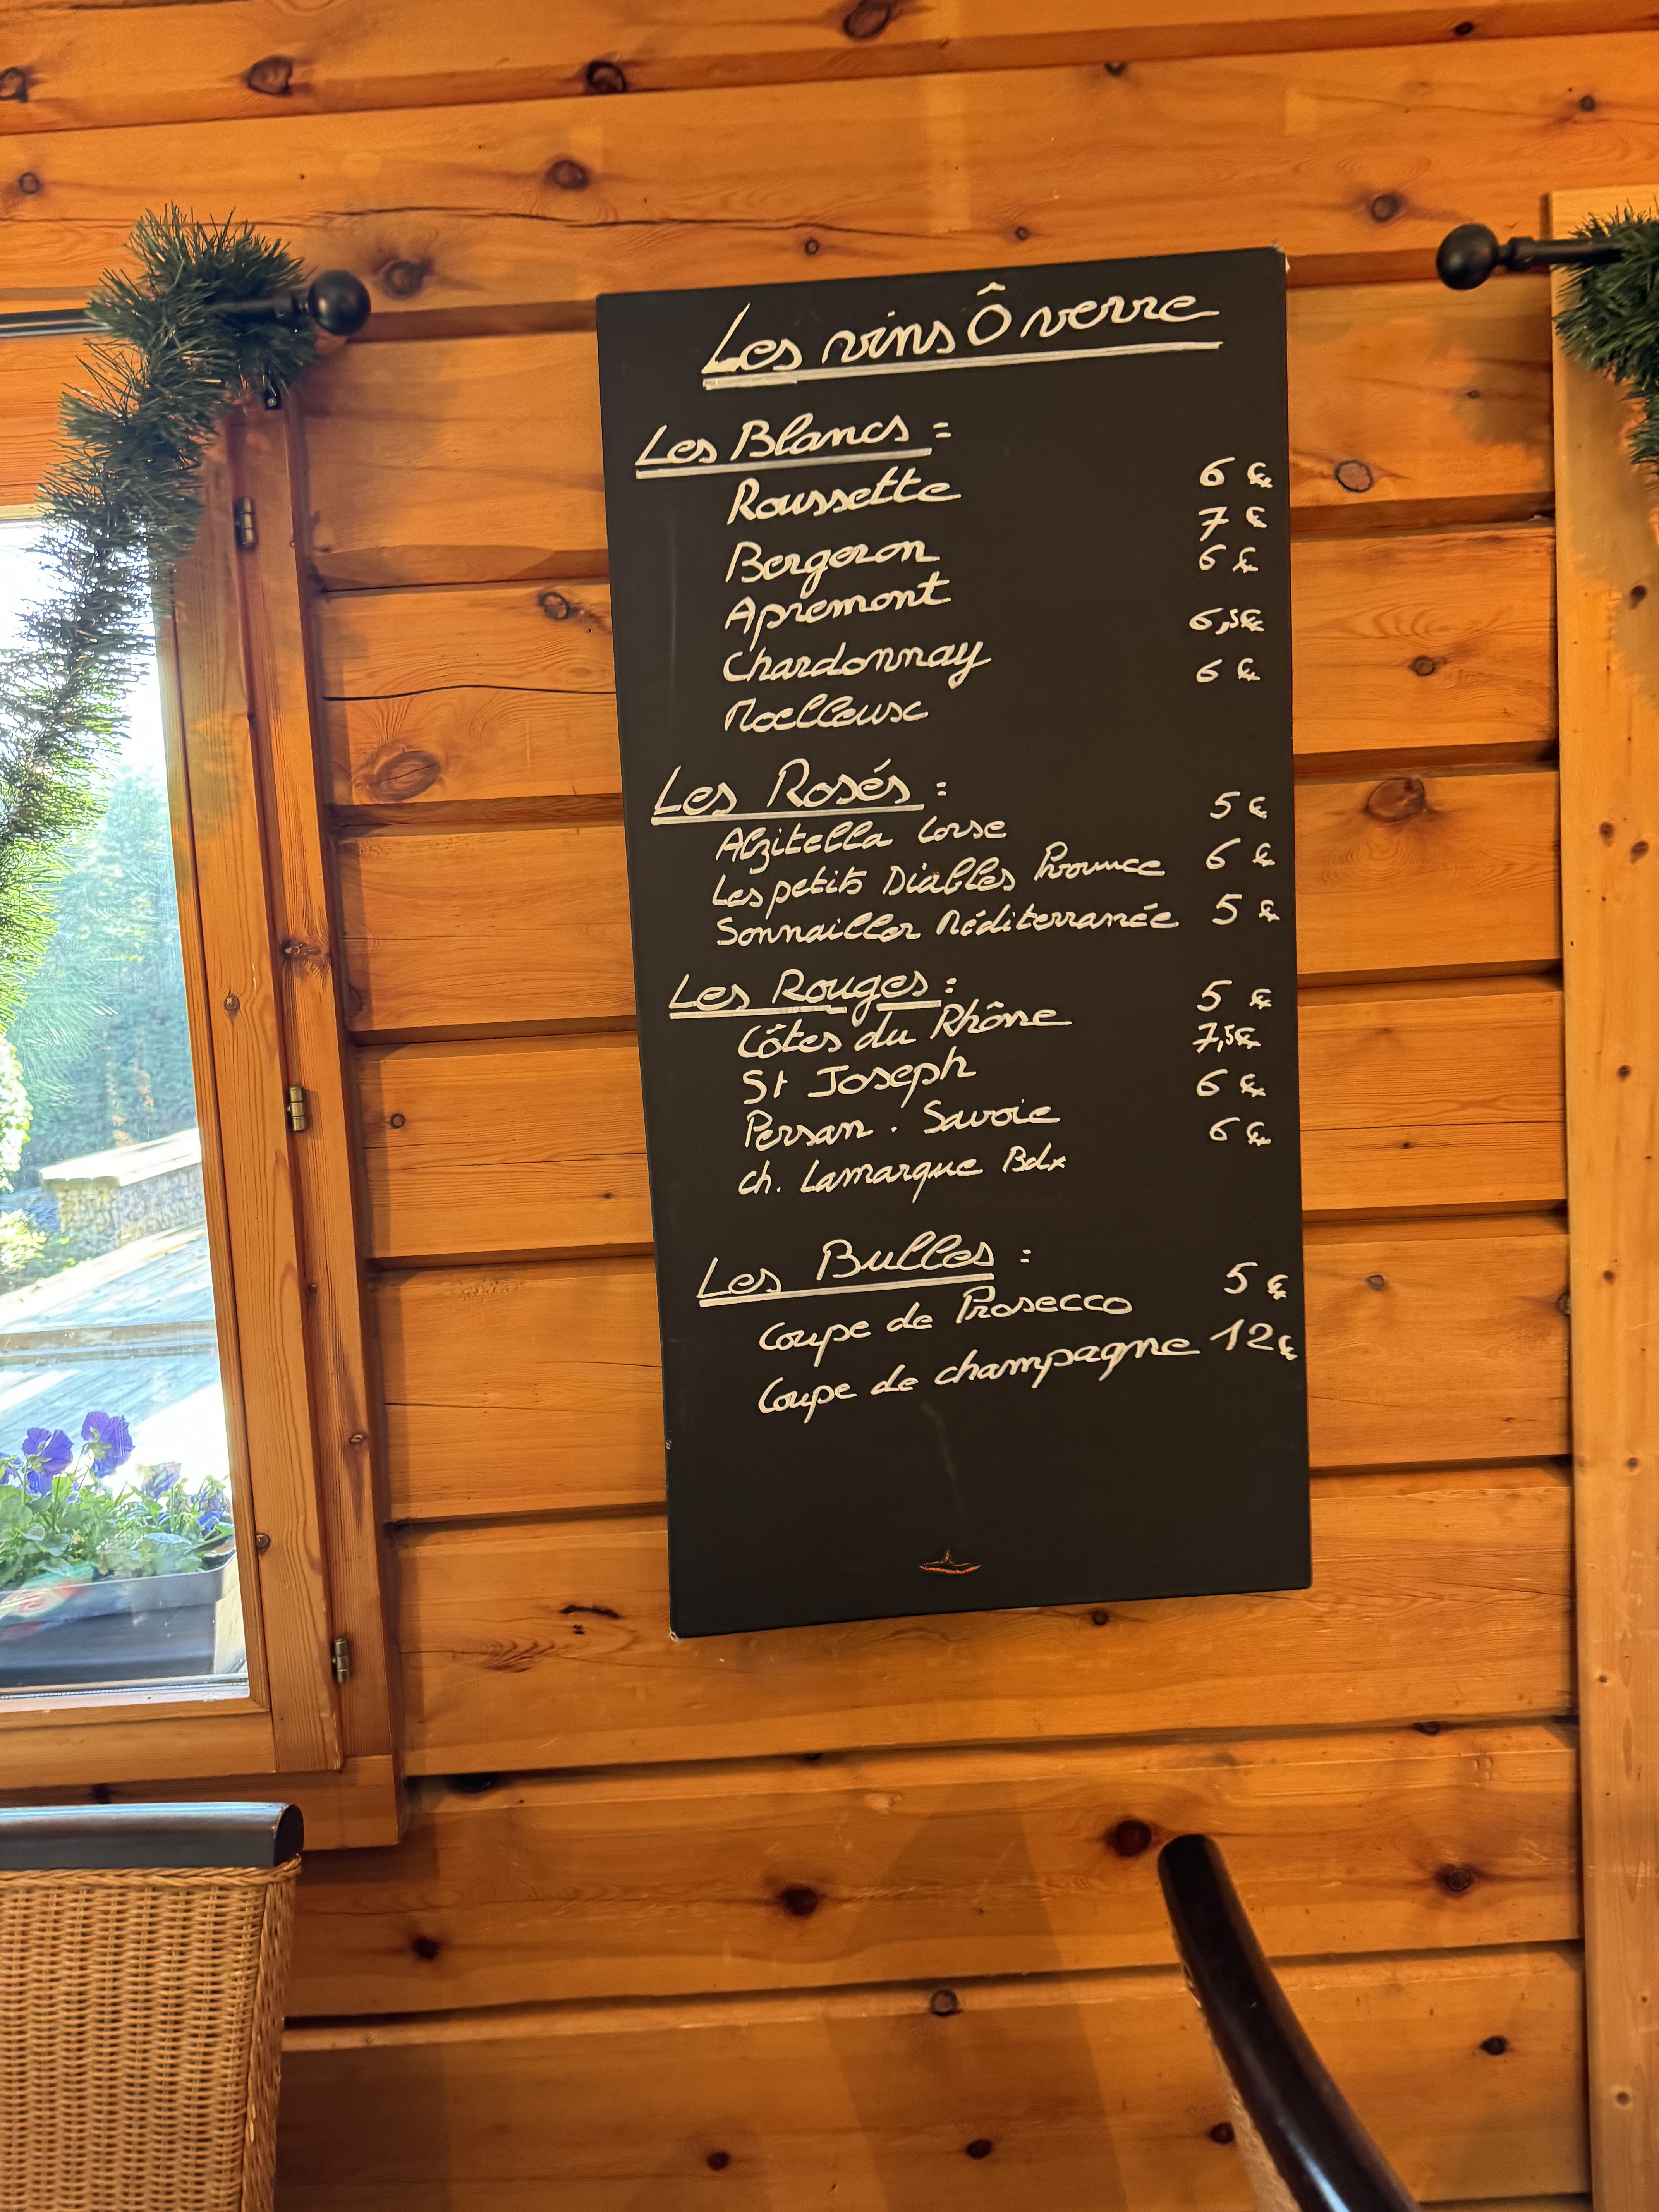 Les vins Ô verre
Les Blancs :
Roussette 6 €
Bergeron 7 €
Apremont 6 €
Chardonnay 6,5€
Moelleux 6 €
Les Rosés :
Alzitella Corse 5 €
Les petits Diables Provence 6 €
Sonnailler Méditerranée 5 €
Les Rouges :
Côtes du Rhône 5 €
St Joseph 7,5€
Persan . Savoie 6 €
ch. Lamarque Bdx 6 €
Les Bulles :
Coupe de Prosecco 5 €
Coupe de champagne 12€